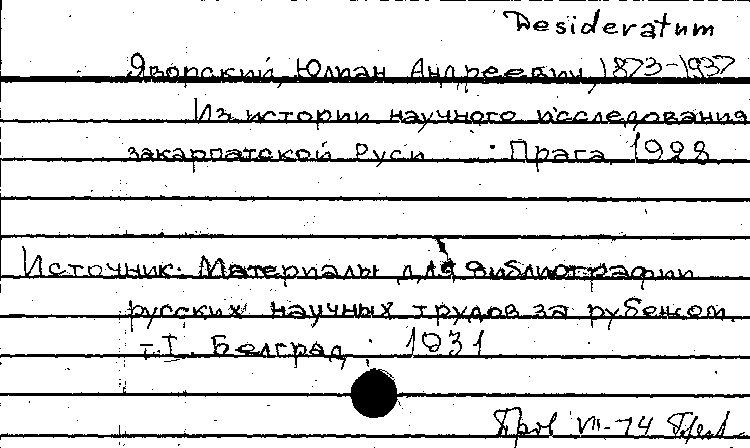 Desideratum
Яворский, Юлиан Андреевич, 1873-1937
Из истории научного исследования
закарпатской Руси : Прага, 1928
Источник: Материалы для библиографии
русских научных трудов за рубежом.
т.I. Белград, : 1931
VII-74